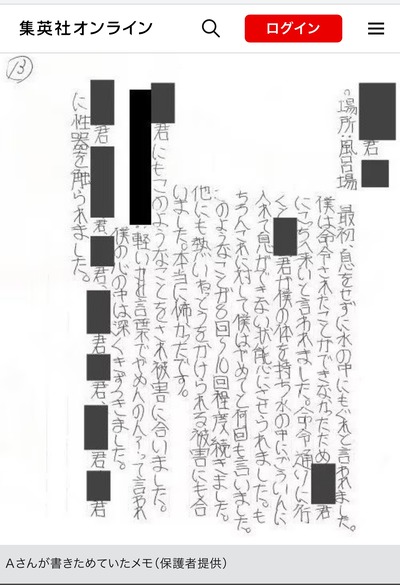 集英社オンライン
ログイン
13
君
場所:風呂場
最初、息をせずに水の中にもぐれと言われました。
僕は命令されたことができなかったため 君
にこっちへ来いと言われました。命令通りに行
くと 君が僕の体を持ち水の中に
入れて息ができない状態にさせられました。も
ちろんそれに対して僕はやめてと何回も言いました。
このようなことが8回~10回程度続きました。
他にも熱いねっとうをかけられる被害にも合
いました。本当に怖かったです。
君にもこのようなことをされ被害に合いました。
軽い 言葉でやめ って言われ
僕の心の中は深くきずつきました。
君、 君、 君、 君、 君、 君、 君
に性器を触られました。
Aさんが書きためていたメモ(保護者提供)